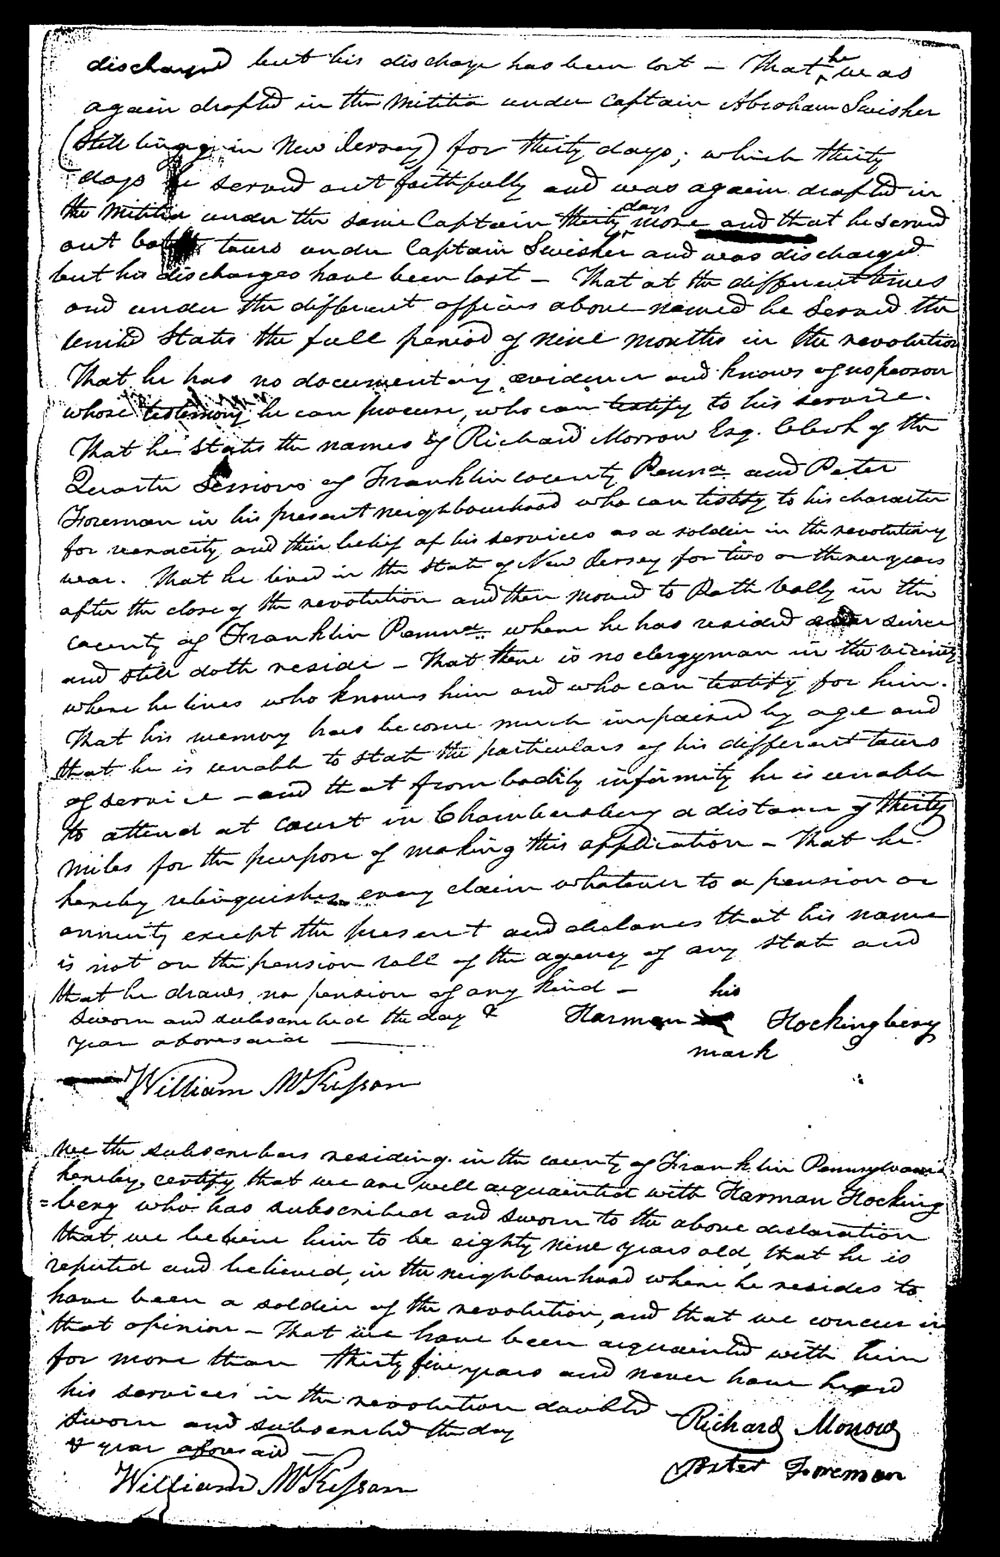 discharged but his discharge has been lost – That he was
again drafted in the Militia under Captain Abraham Swisher
(Still living in New Jersey) for thirty days; which thirty
days he served out faithfully and was again drafted in
the Militia under the same Captain thirty days more and that he served
out both tours under Captain Swisher and was discharged
but his discharges have been lost – That at the different times
and under the different officers above named he served the
United States the full period of nine months in the revolution
That he has no documentary evidence and knows of no person
whose testimony he can procure, who can testify to his service.
That he states the names of Richard Morrow Esq. Clerk of the
Quarter Sessions of Franklin County Penna and Peter
Foreman in his present neighbourhood who can testify to his character
for veracity and their belief of his services as a soldier in the revolutionary
war. That he lived in the State of New Jersey for two or three years
after the close of the revolution and then moved to Path Vally in the
County of Franklin Penna. where he has resided ever since
and still doth reside – That there is no clergyman in the vicinity
where he lives who knows him and who can testify for him.
That his memory has become much impaired by age and
that he is unable to state the particulars of his different tours
of service – and that from bodily infirmity he is unable
to attend at court in Chambersburg a distance of thirty
miles for the purpose of making this application – That he
hereby relinquishes every claim whatever to a pension or
annuity except the present and declares that his name
is not on the pension roll of the agency of any state and
that he draws no pension of any kind –
Sworn and subscribed the day &
year aforesaid
his
Harman Hockingbery
mark
William McKesson
We the subscribers residing in the county of Franklin Pennsylvania
hereby certify that we are well acquainted with Harman Hocking
=bery who has subscribed and sworn to the above declaration
that we believe him to be eighty nine years old, that he is
reputed and believed, in the neighbourhood where he resides to
have been a soldier of the revolution, and that we concur in
that opinion – That we have been acquainted with him
for more than thirty five years and never have heard
his services in the revolution doubted
Sworn and subscribed the day
& year aforesaid –
Richard Morrow
Peter Foreman
William McKesson